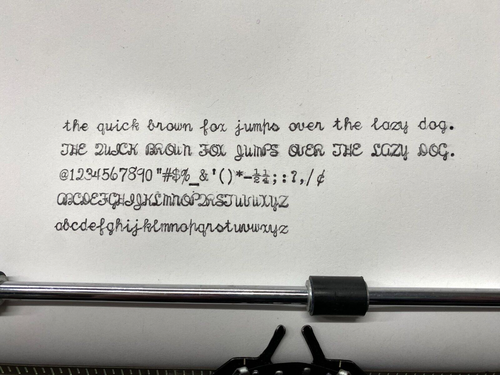 the quick brown fox jumps over the lazy dog.
THE QUICK BROWN FOX JUMPS OVER THE LAZY DOG.
@1234567890"#$%_&'()*-½¼;:?,/¢
ABCDEFGHIJKLMNOPQRSTUVWXYZ
abcdefghijklmnopqrstuvwxyz